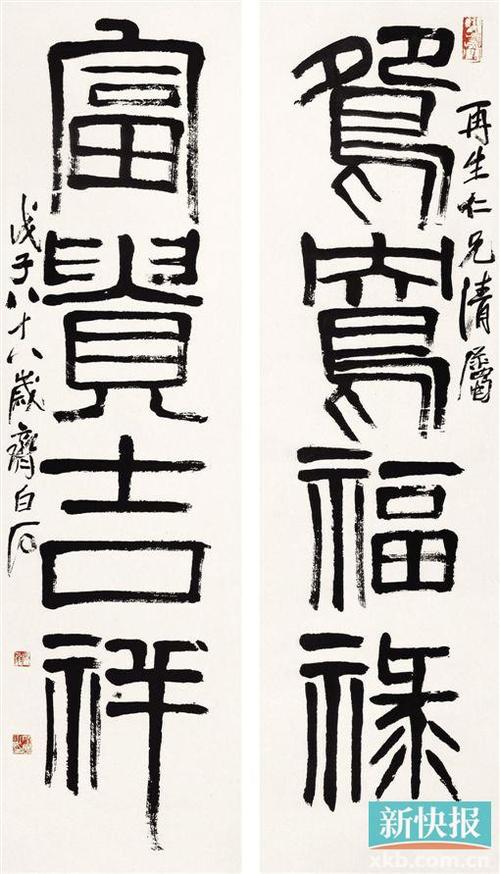 鴛鴦福祿
再生仁兄清屬
富貴吉祥
戊子八十八歲齊白石
新快报
xkb.com.cn